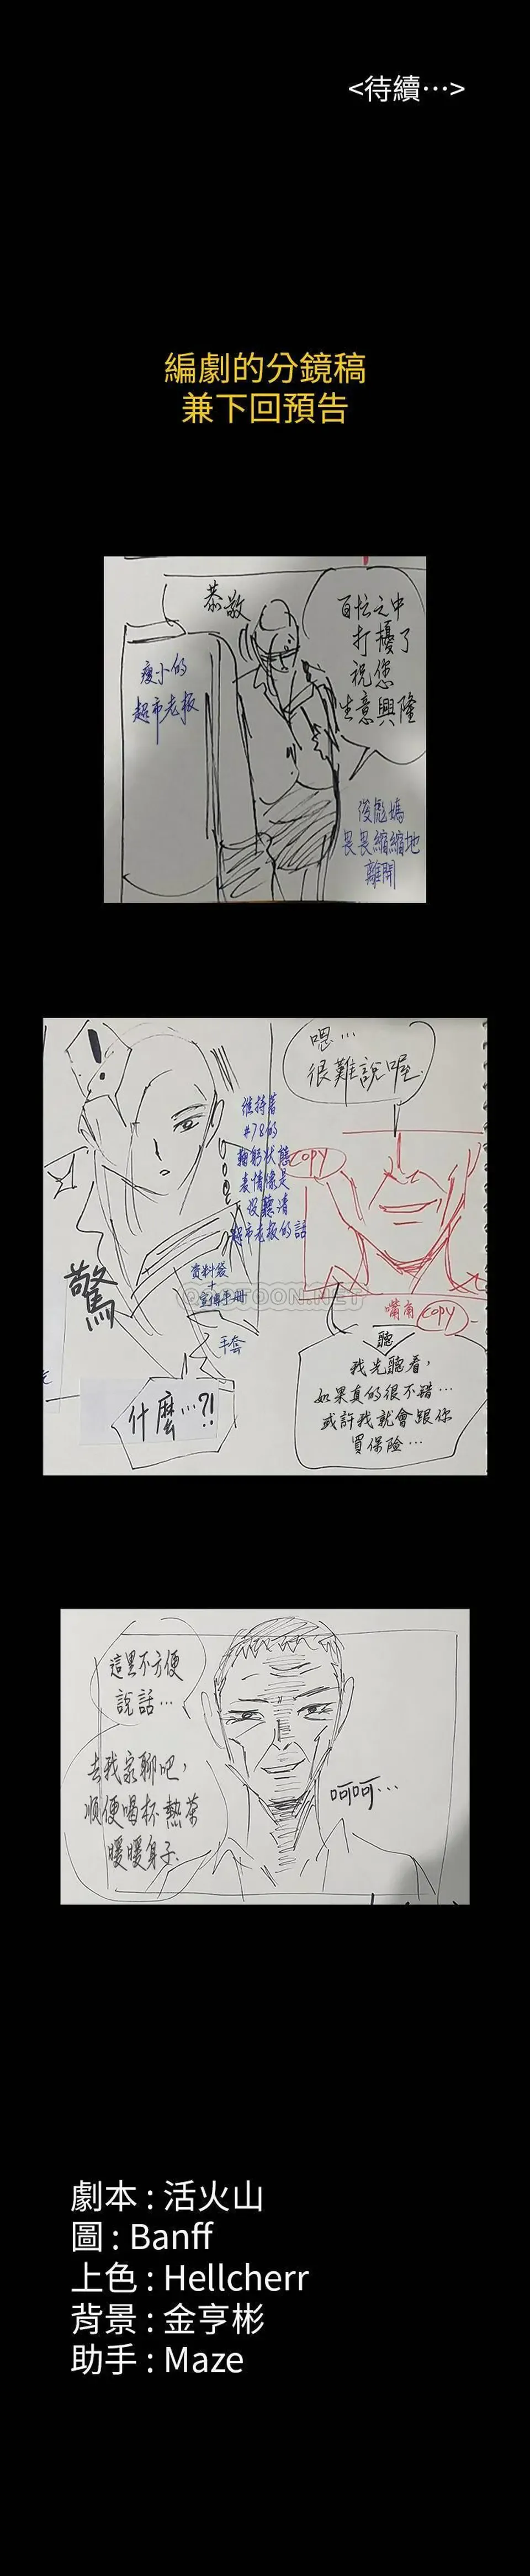 <待續…>
編劇的分鏡稿
兼下回預告
恭敬
百忙之中
打擾了
祝您
生意興隆
瘦小的
超市老板
俊彪媽
畏畏縮縮地
離開
嗯…
很難說喔.
維持著
#78的
鞠躬狀態
表情像是
沒聽清
超市老板的話
COPY
資料袋
+
宣傳手冊
手套
驚
什麼…?!
嘴角 COPY
聽
我先聽看,
如果真的很不錯…
或許我就會跟你
買保險…
這里不方便
說話…
去我家聊吧,
順便喝杯熱茶
暖暖身子.
呵呵…
劇本 : 活火山
圖 : Banff
上色 : Hellcherr
背景 : 金亨彬
助手 : Maze